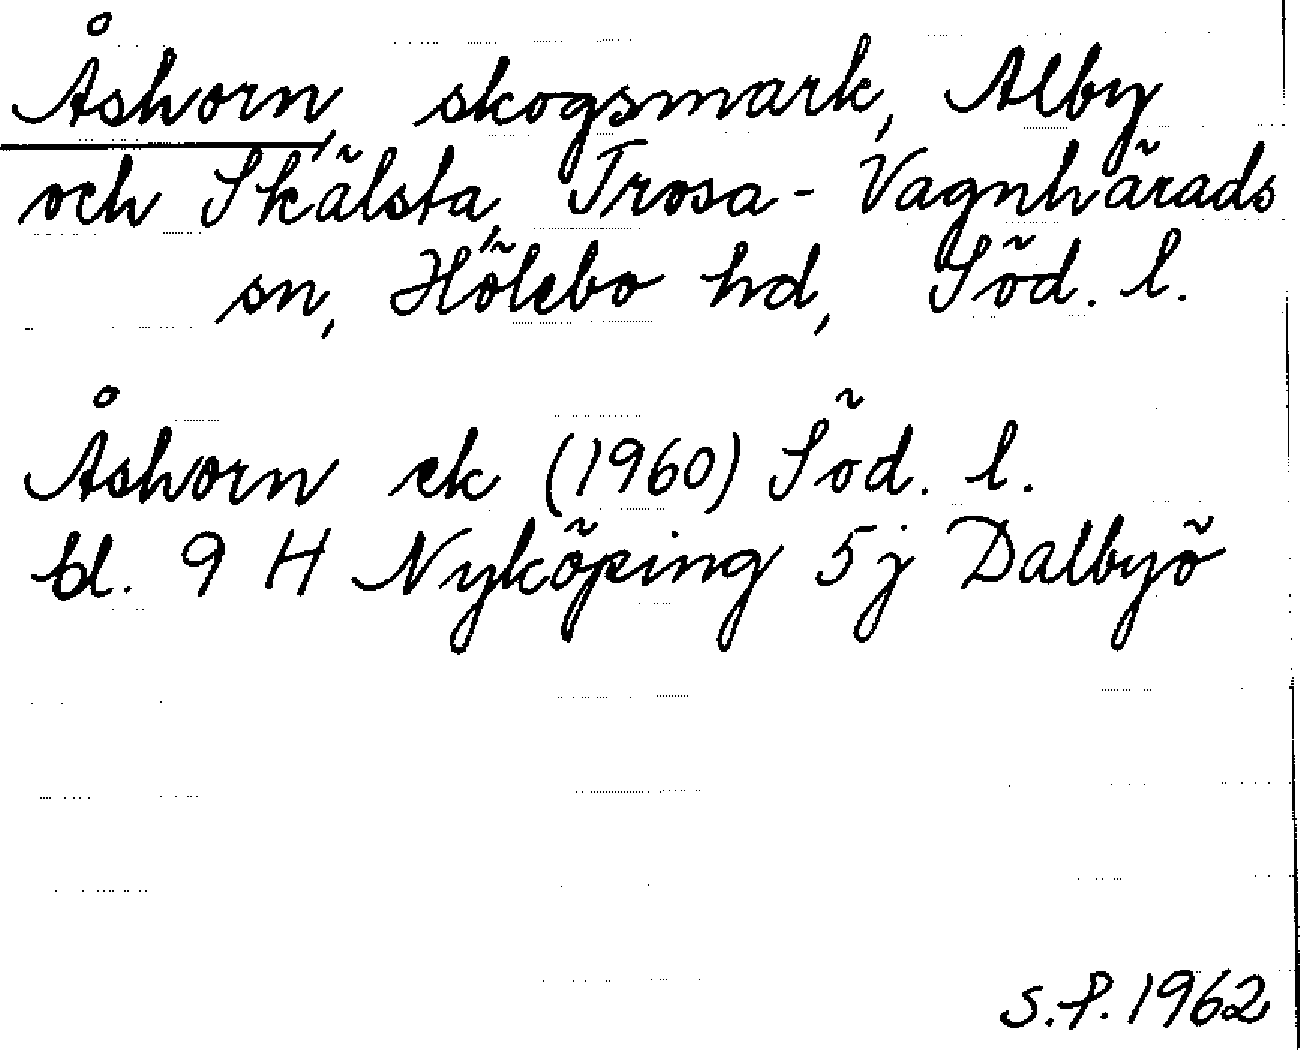 Åshorn, skogsmark, Alby
och Skälsta, Trosa-Vagnhärads
sn, Hölebo hd, Söd. l.
Åshorn ek (1960) Söd. l.
bl. 9 H Nyköping 5j Dalbyö
S.P. 1962